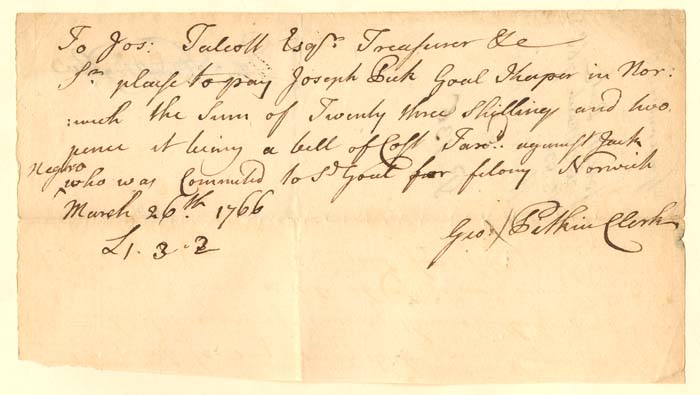 To Jos: Talcott Esqr. Treasurer &c
Sr. please to pay Joseph Peck Goal Keeper in Nor:
:wich the Sum of Twenty three Shillings and two
pence it being a bill of Cost Tax'd. against Jack
Negro
who was Commited to Sd Goal for felony Norwich
March 26th. 1766
£1. 3. 2
Geo: Pitkin Clerk